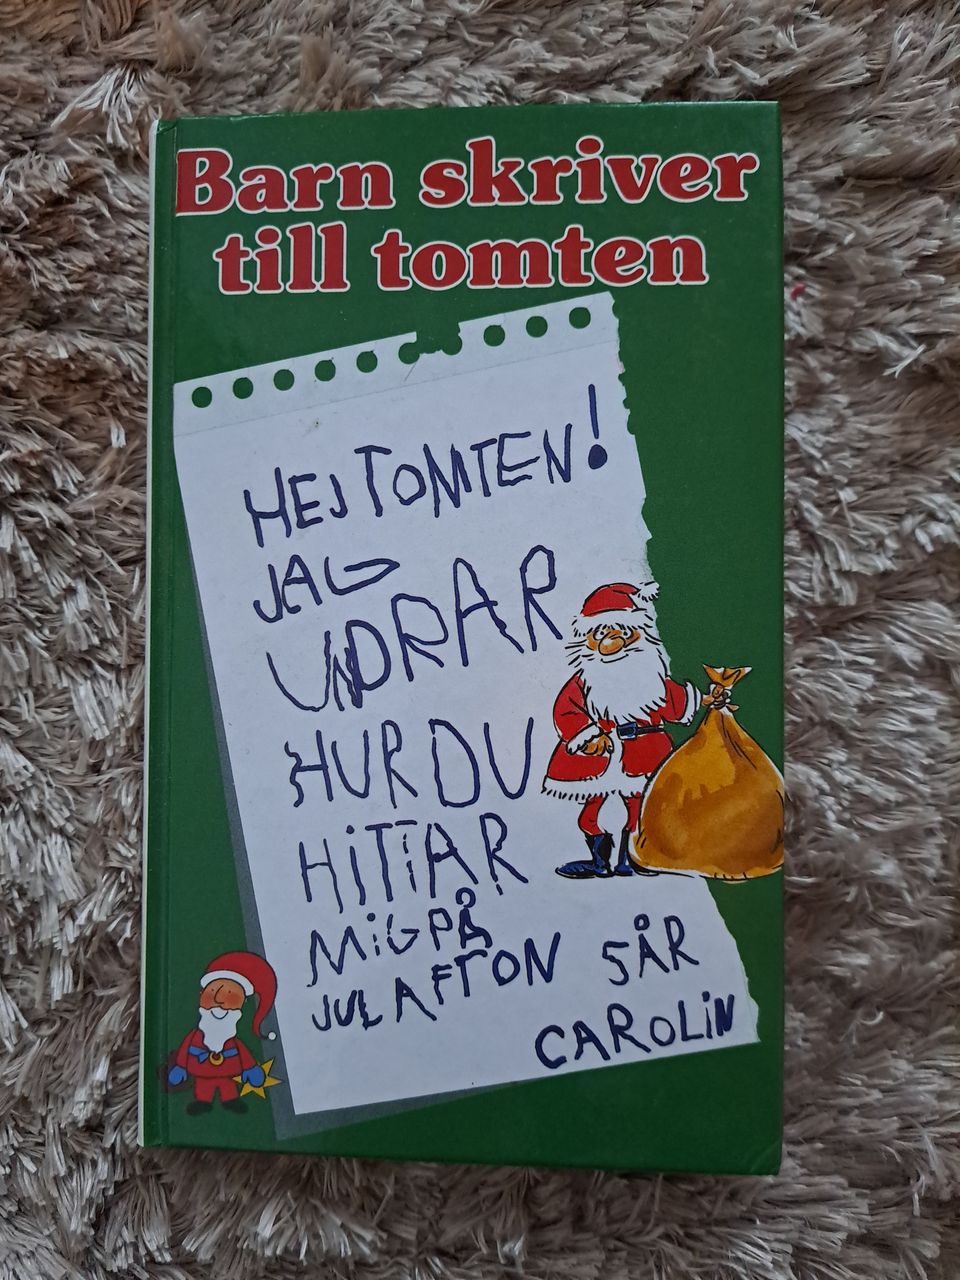 Barn skriver
till tomten
HEJ TOMTEN!
JAG
UNDRAR
HUR DU
HiTTAR
MiG PÅ
JULAFTON
5 ÅR
CAROLiN